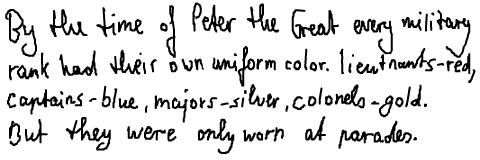 By the time of Peter the Great every military
rank had their own uniform color. lieutnants-red,
captains-blue, majors-silver, colonels-gold.
But they were only worn at parades.